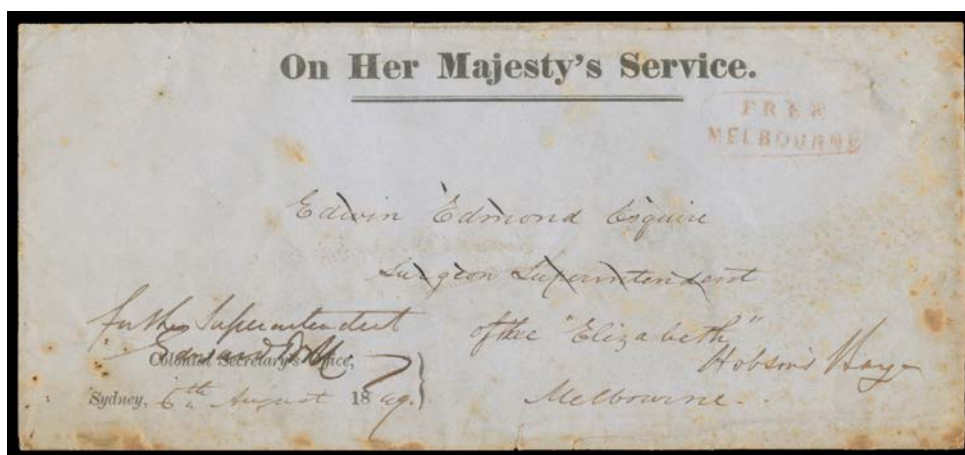 On Her Majesty's Service.
FREE
MELBOURNE
Edwin Edmond Esquire
Surgeon Superintendent
of the "Elizabeth"
Hobson's Bay
Melbourne.
for the Superintendent
Colonial Secretary's Office,
Sydney, 6th August 1849.